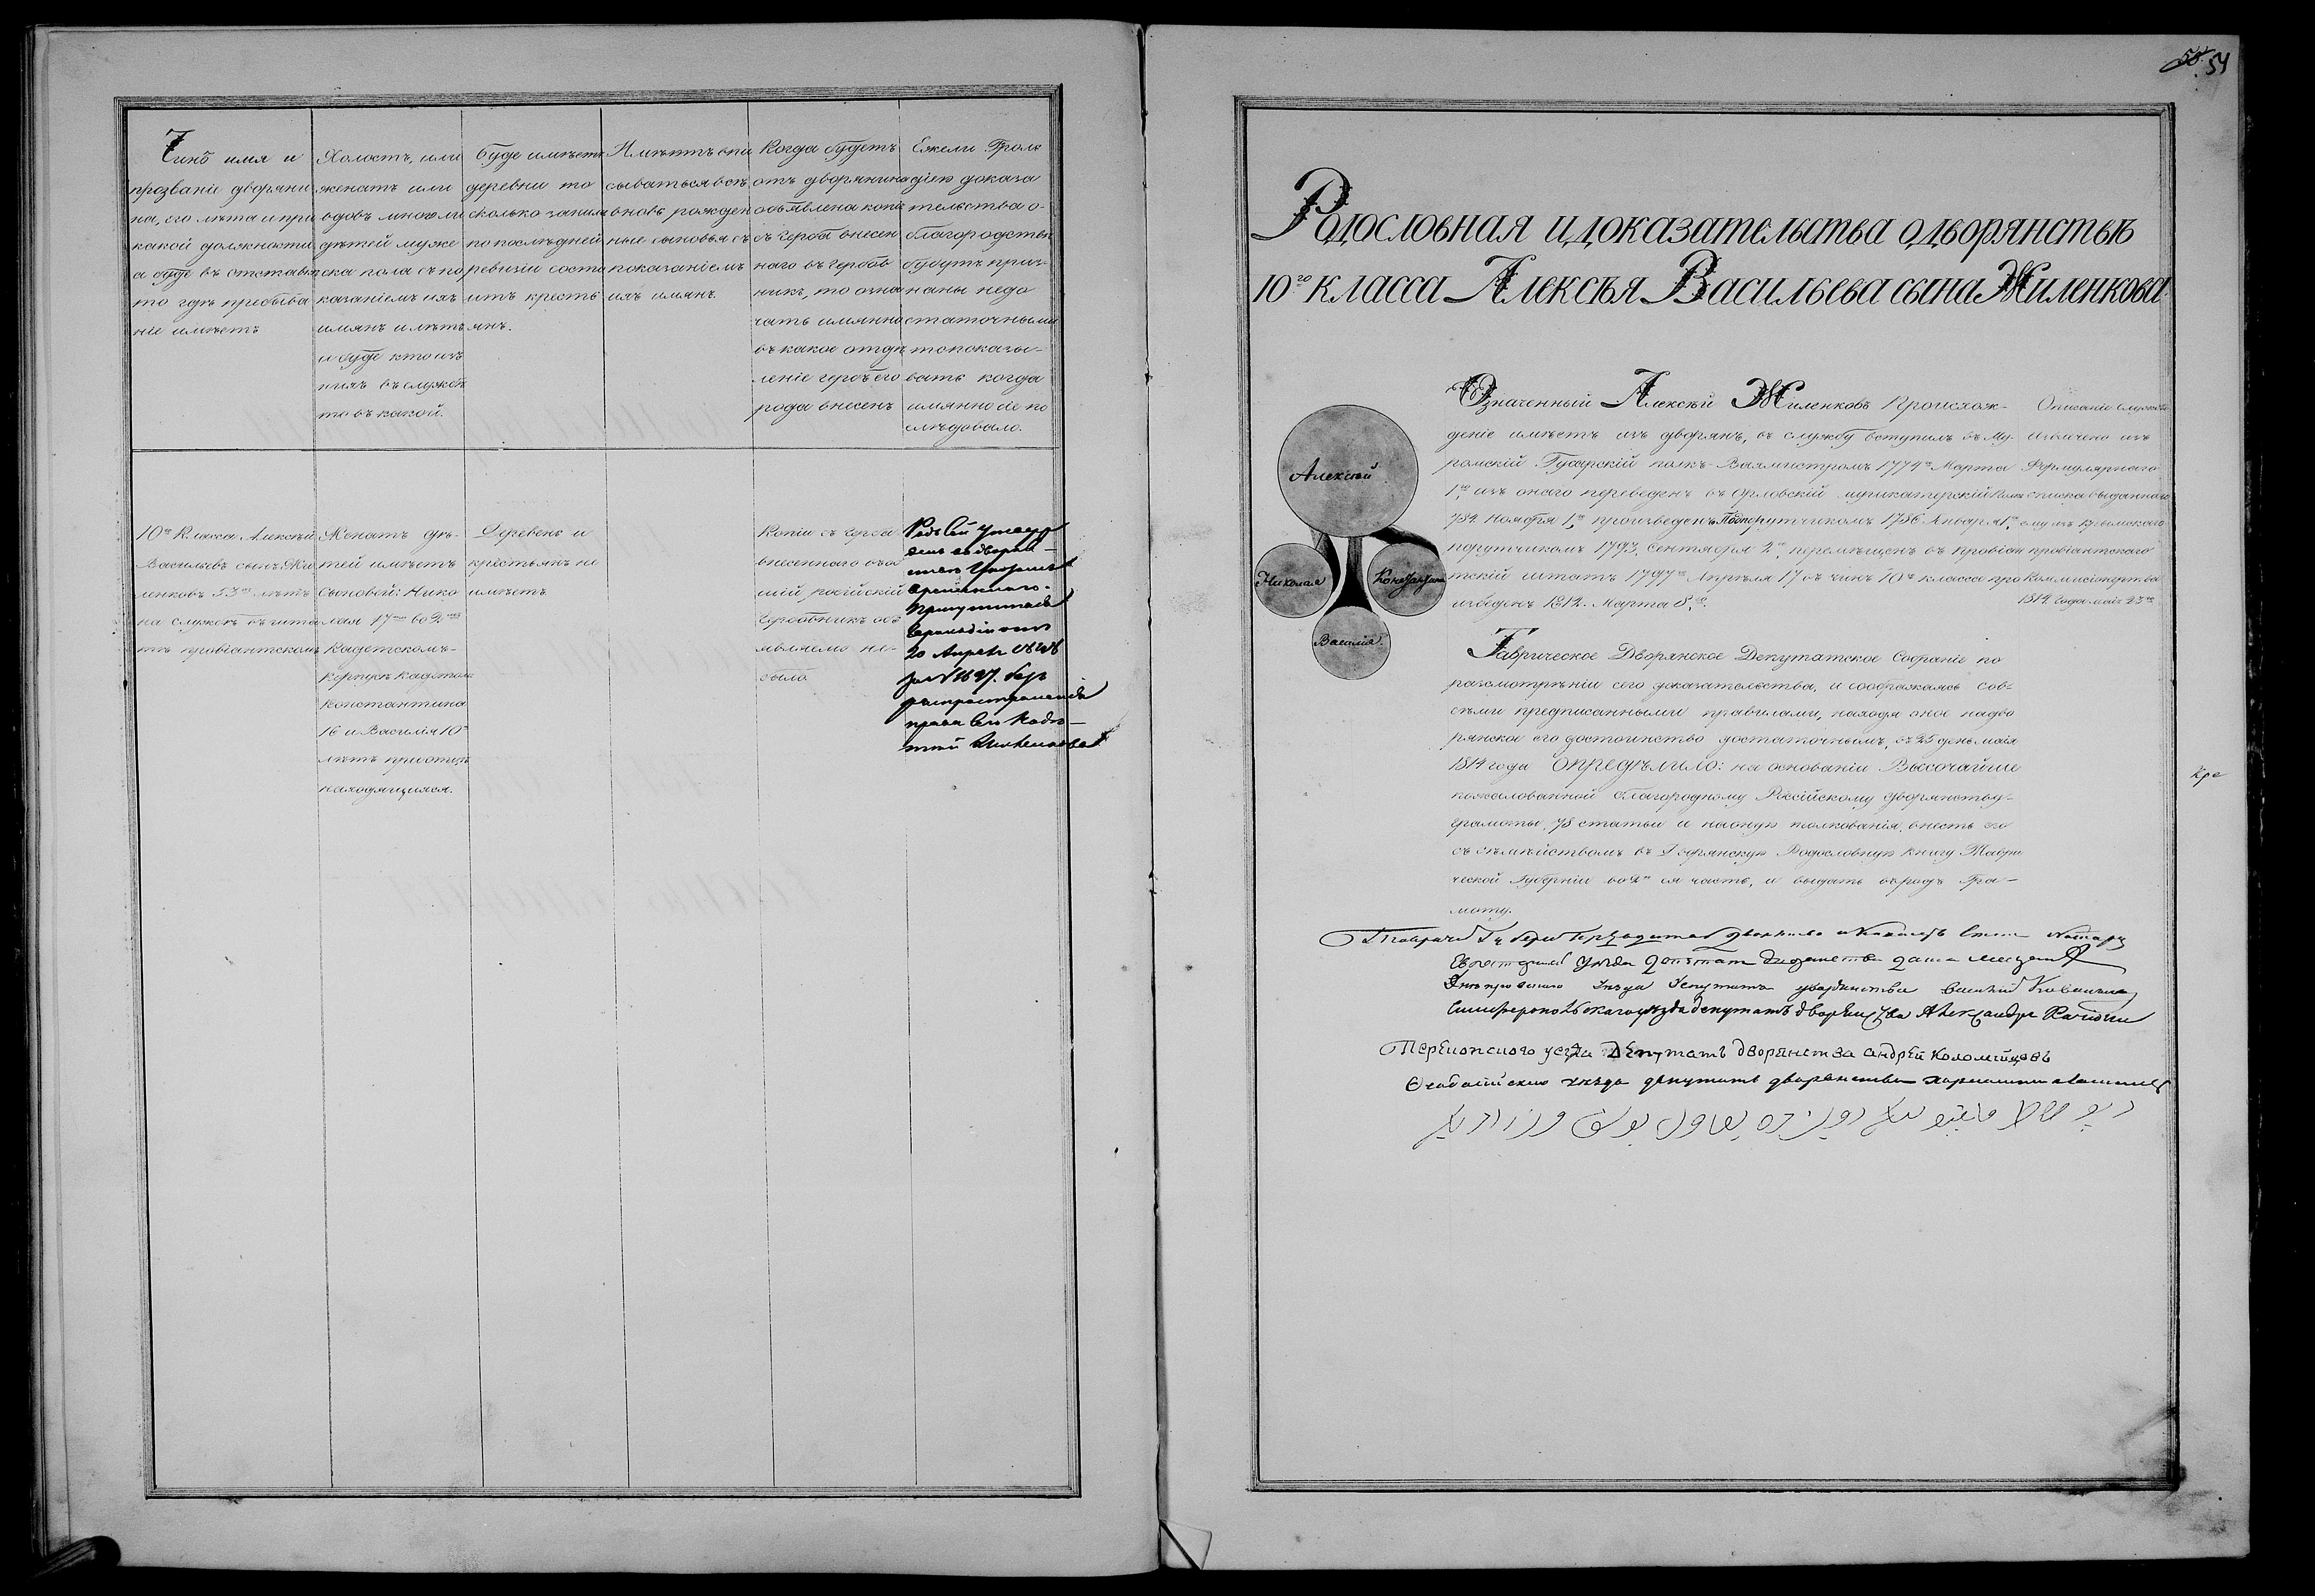 Чинъ имя и
прозваніе дворяни
на, его лѣта и при
какой должности
а буде въ отставкѣ
то гдѣ пребыва
ніе имѣетъ
Холостъ, или
женатъ или
вдовъ много ли
дѣтей муже
ска пола съ по
казаніемъ ихъ
имянъ и лѣтъ
и буде кто изъ
нихъ въ службѣ
то въ какой.
буде имѣетъ
деревни то
сколько за ним
по послѣдней
ревизіи состо
итъ кресть
янъ.
Имѣютъ опи
сываться всѣ
вновь рожден
ные сыновья съ
показаніемъ
ихъ имянъ.
Когда будетъ
отъ дворянина
объявлена копія
съ герба внесен
наго въ гербов
никъ, то озна
чать имянно
въ какое отдѣ
леніе гербъ его
рода внесенъ
Ежели Герол
діею доказа
тельства о-
благородствѣ
будутъ приз-
наны недо
статочными
то показы-
вать когда
имянно сіе по
слѣдовало.
10го Класса Алексѣй
Васильевъ сынъ Жи
ленковъ 53хъ лѣтъ
на службѣ въ шта
тѣ провіантскомъ
Женатъ дѣ-
тей имѣетъ
Сыновей: Нико
лая 17 во 2мъ
Кадетскомъ-
корпусѣ кадетомъ
Константина
16 и Василія 10ти
лѣтъ при отцѣ
находящихся.
Деревень и
крестьянъ не
имѣетъ
Копіи съ герба
внесеннаго въ об
щій російскій
Гербовникъ объ
являемо не-
было
Родъ сей утверж
денъ въ дворян-
20 Апрѣля 1848
за № 1627. безъ
распространенія
права
50. 54
Родословная и доказательства о дворянствѣ
10го класса Алексѣя Васильева сына Жиленкова
Алексѣй
Николая
Константина
Василія
Означенный Алексѣй Жиленковъ происхож-
деніе имѣетъ изъ дворянъ, въ службу вступилъ въ Му-
ромскій Гусарскій полкъ Вахмистромъ 1774го Марта
1го, изъ онаго переведенъ въ Орловскій мушкатерскій полкъ
784. Ноября 1го, произведенъ Подпорутчикомъ 1786 Января 1го
порутчикомъ 1793, Сентября 2го, перемѣщенъ въ провіан
тскій штатъ 1797го Апрѣля 17 въ чинъ 10го класса про
изведенъ 1812. Марта 8го.
Описаніе службы
извлечено изъ
Формулярнаго
списка выданнаго
ему изъ Крымскаго
провіантскаго
Коммисіонерства
1814 года маія 23го
Таврическое Дворянское Депутатское Собраніе по
разсмотрѣніи сего доказательства, и соображаясь сов-
сѣми предписанными правилами, находя оное на дво
рянское его достоинство достаточнымъ, въ 25 день маія
1814 года Опредѣлило: на основаніи Высочайше
пожалованной благородному Россійскому дворянству-
грамоты, 78 статьи и на оную толкованія, внесть его
съ сѣмѣйствомъ въ Дворянскую Родословную Книгу Таври
ческой Губерніи во 2ю ея часть, и выдать въ родъ Гра-
моту.
Днѣпровскаго уѣзда Депутатъ дворянства Василій
Симферопольскаго уѣзда депутатъ дворянства Александръ
Перекопского уезда Депутатъ дворянства андрей коломийцовъ
Ѳеодосійскаго уѣзда депутатъ дворянства